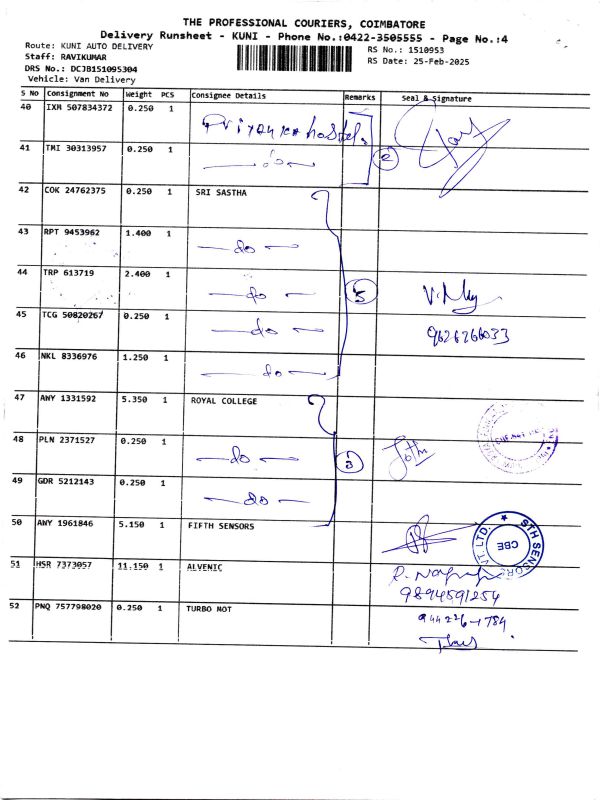 THE PROFESSIONAL COURIERS, COIMBATORE
Delivery Runsheet - KUNI - Phone No.:0422-3505555 - Page No.:4
Route: KUNI AUTO DELIVERY
RS No.: 1510953
Staff: RAVIKUMAR
RS Date: 25-Feb-2025
DRS No.: DCJB151095304
Vehicle: Van Delivery
S No Consignment No Weight PCS Consignee Details Remarks Seal & Signature
40 IXM 507834372 0.250 1 Priyanka hostel.
41 TMI 30313957 0.250 1 — do — 2
42 COK 24762375 0.250 1 SRI SASTHA
43 RPT 9453962 1.400 1 — do —
44 TRP 613719 2.400 1 — do — 5
45 TCG 50820267 0.250 1 — do — 9626266033
46 NKL 8336976 1.250 1 — do —
47 AWY 1331592 5.350 1 ROYAL COLLEGE
48 PLN 2371527 0.250 1 — do — 3
49 GDR 5212143 0.250 1 — do —
50 AWY 1961846 5.150 1 FIFTH SENSORS
5TH SENSORS VT. LTD. CBE
51 HSR 7373057 11.150 1 ALVENIC
9894591254
52 PNQ 757798020 0.250 1 TURBO MOT